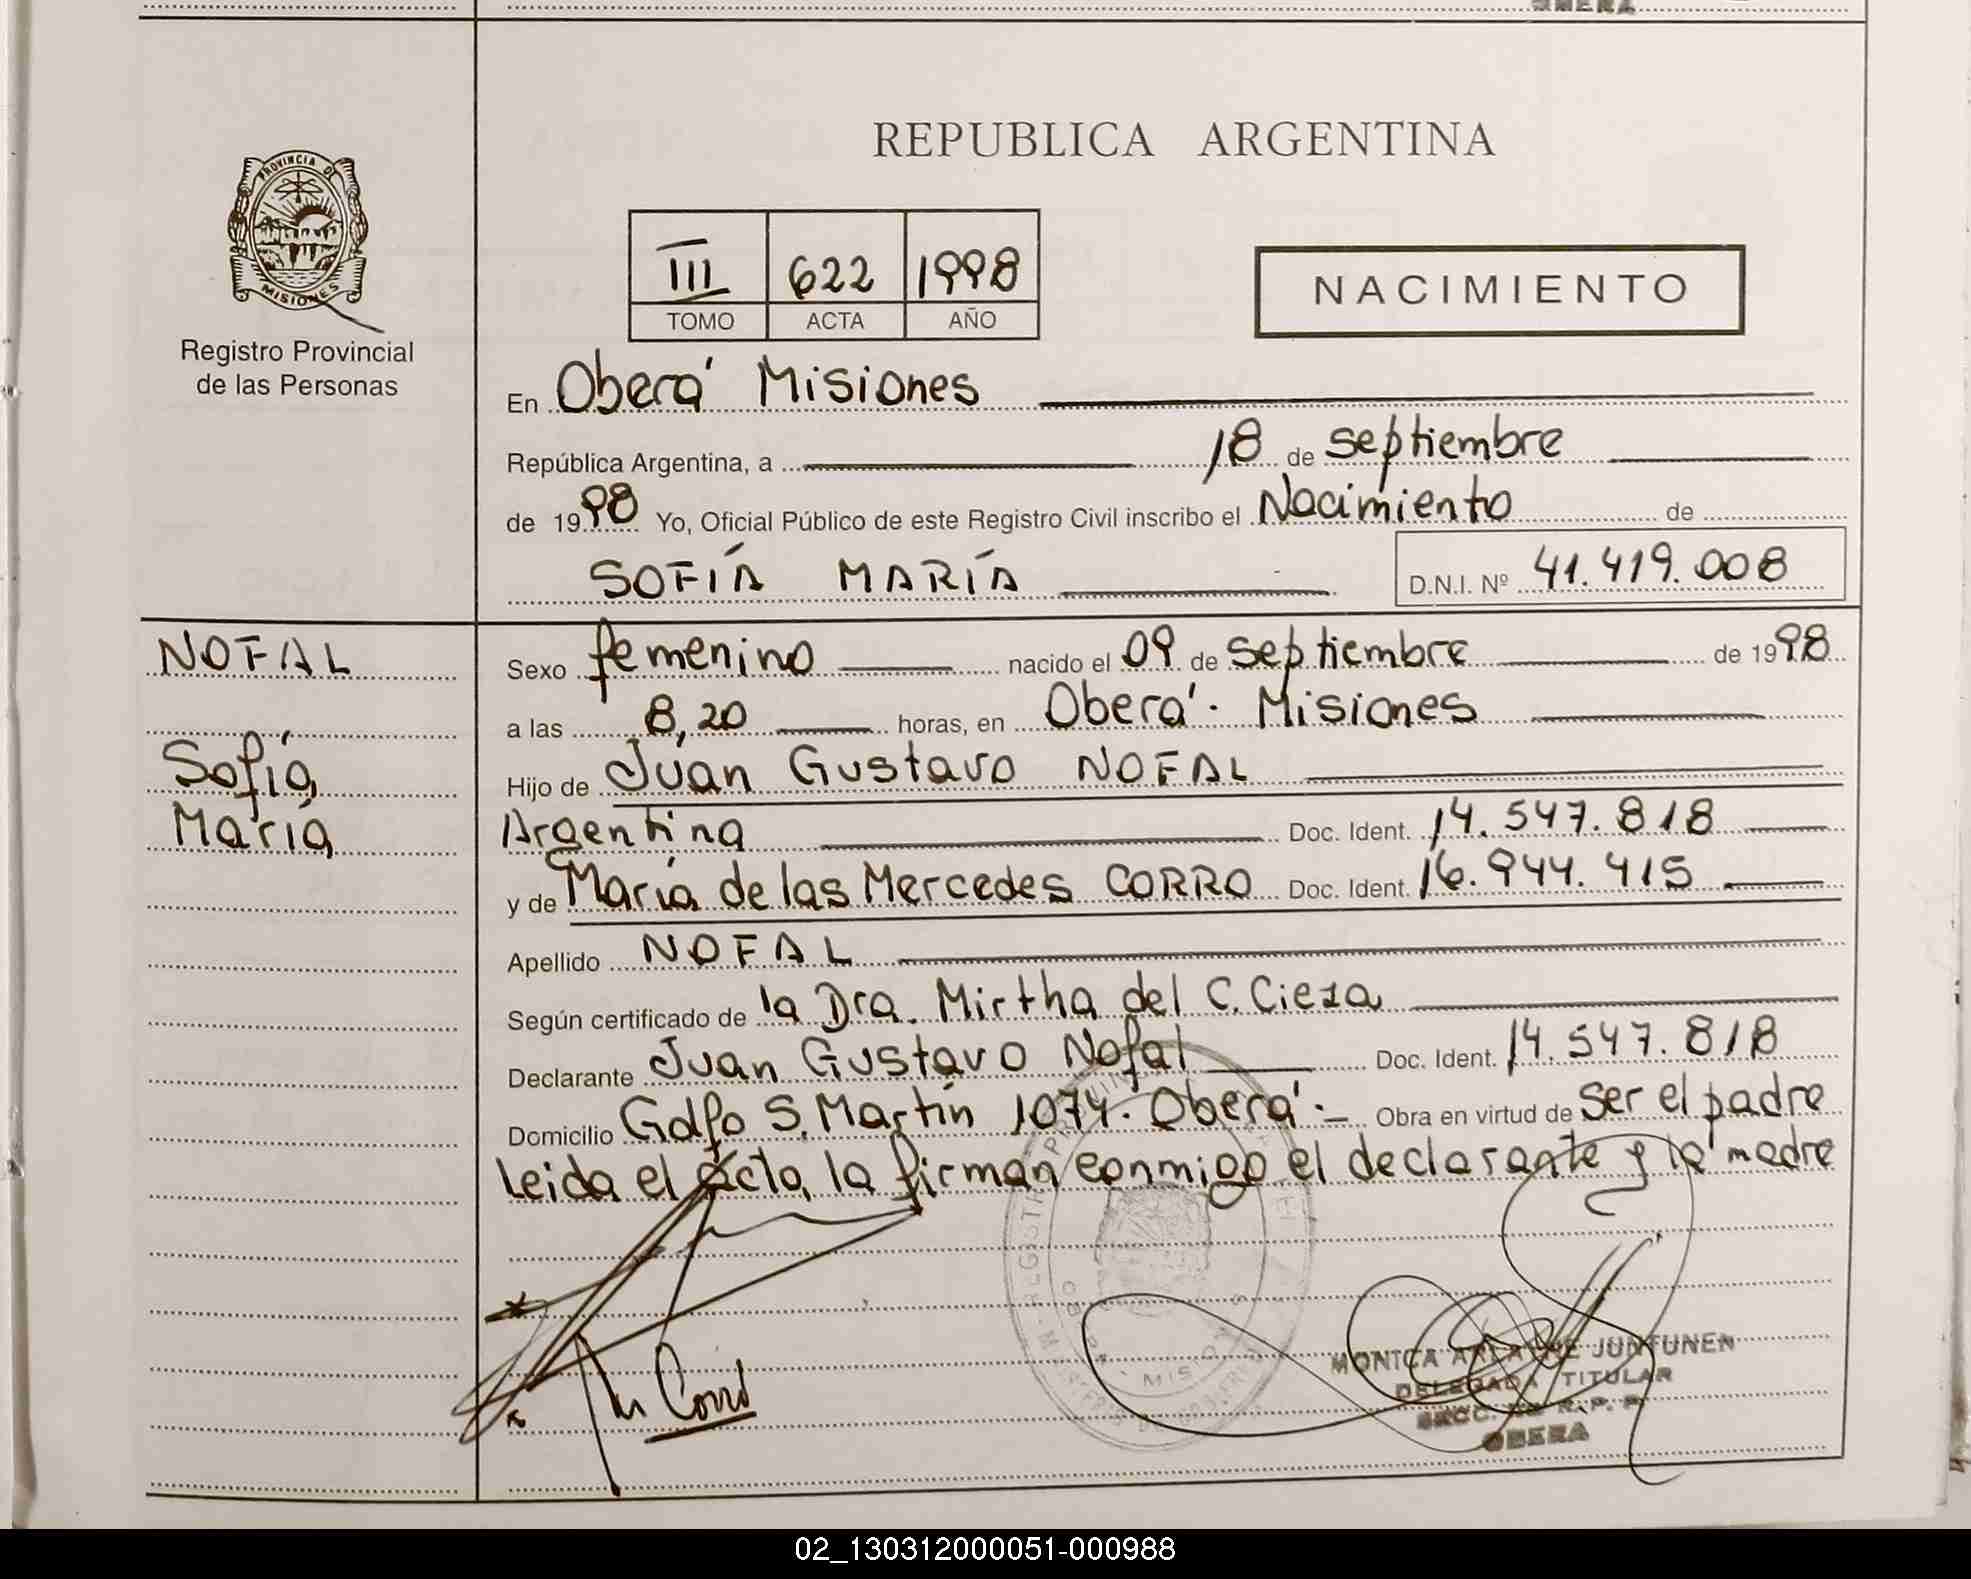 OBERA
REPUBLICA ARGENTINA
PROVINCIA DE
MISIONES
Registro Provincial
de las Personas
III 622 1998
TOMO ACTA AÑO
NACIMIENTO
En Oberá Misiones
República Argentina, a 18 de septiembre
de 1998 Yo, Oficial Público de este Registro Civil inscribo el Nacimiento de
SOFÍA MARÍA D.N.I. Nº 41.419.008
NOFAL
Sofía
María
Sexo femenino nacido el 09 de septiembre de 1998
a las 8,20 horas, en Oberá. Misiones
Hijo de Juan Gustavo NOFAL
Argentina Doc. Ident. 14.547.818
y de María de las Mercedes CORRO Doc. Ident. 16.944.415
Apellido NOFAL
Según certificado de la Dra. Mirtha del C. Cieza
Declarante Juan Gustavo Nofal Doc. Ident. 14.547.818
Domicilio Golfo S. Martín 1074. Oberá.- Obra en virtud de ser el padre
Leida el acta, la firman conmigo el declarante y la madre
M Corro
MONICA DE JUNTUNEN
DELEGADA TITULAR
SECC. DE R. P. P.
OBERA
02_130312000051-000988